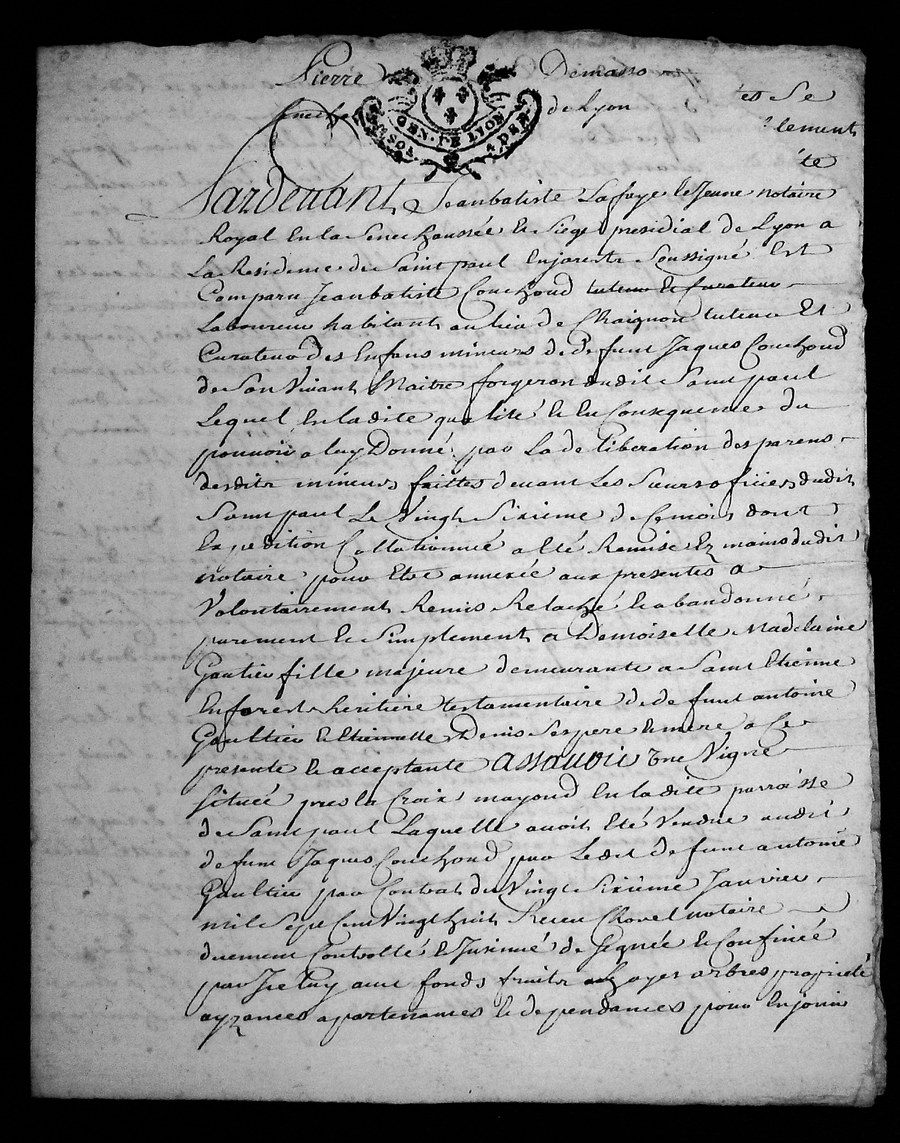 Pierre Demasso
de Lyon et Se
GEN. DE LYON
lement
te
Pardevant Jeanbatiste Lafaye le Jeune notaire
Royal En la Senechaussée & Siege presidial de Lyon a
La Residence de Saint paul Enjarestz Soussigné Est
Comparu Jeanbatiste Couchoud tuteur et Curateur
Laboureur habitant au lieu de Chaignon tuteur Et
Curateur des Enfans mineurs de defunt Jaques Couchoud
de Son Vivant Maitre forgeron dudit Saint paul
Lequel En ladite qualité & En Consequence du
pouvoir a luy Donné par La deliberation des parens
desdits mineurs faittes devant Les Sieurs officiers dudit
Saint paul Le Vingt Sixieme de Ce mois dont
Expedition Collationnée a Eté Remise Ez mains dudit
notaire pour Etre annexée aux presentes a
Volontairement Remis Relaché & abandonné
purement & Simplement a Demoiselle Madelaine
Gautier fille majeure demeurante a Saint Etienne
En forest heritiere testamentaire de defunt antoine
Gaultier & Denis Ses pere & mere a Ce
presente & acceptante assavoir une Vigne
Située pres la Croix mayoud En ladite parroisse
de Saint paul Laquelle avoit Eté Vendue audit
defunt Jaques Couchoud par Ledit defunt antoine
Gaultier par Contrat du Vingt Sixieme Janvier
mil Sept Cent Vingt huit Receu Chovel notaire
duement Controllé & Insinué designée & Confinée
par Iceluy avec fonds fruits arbres proprieté
ayzances apartenances & dependances pour En jouir